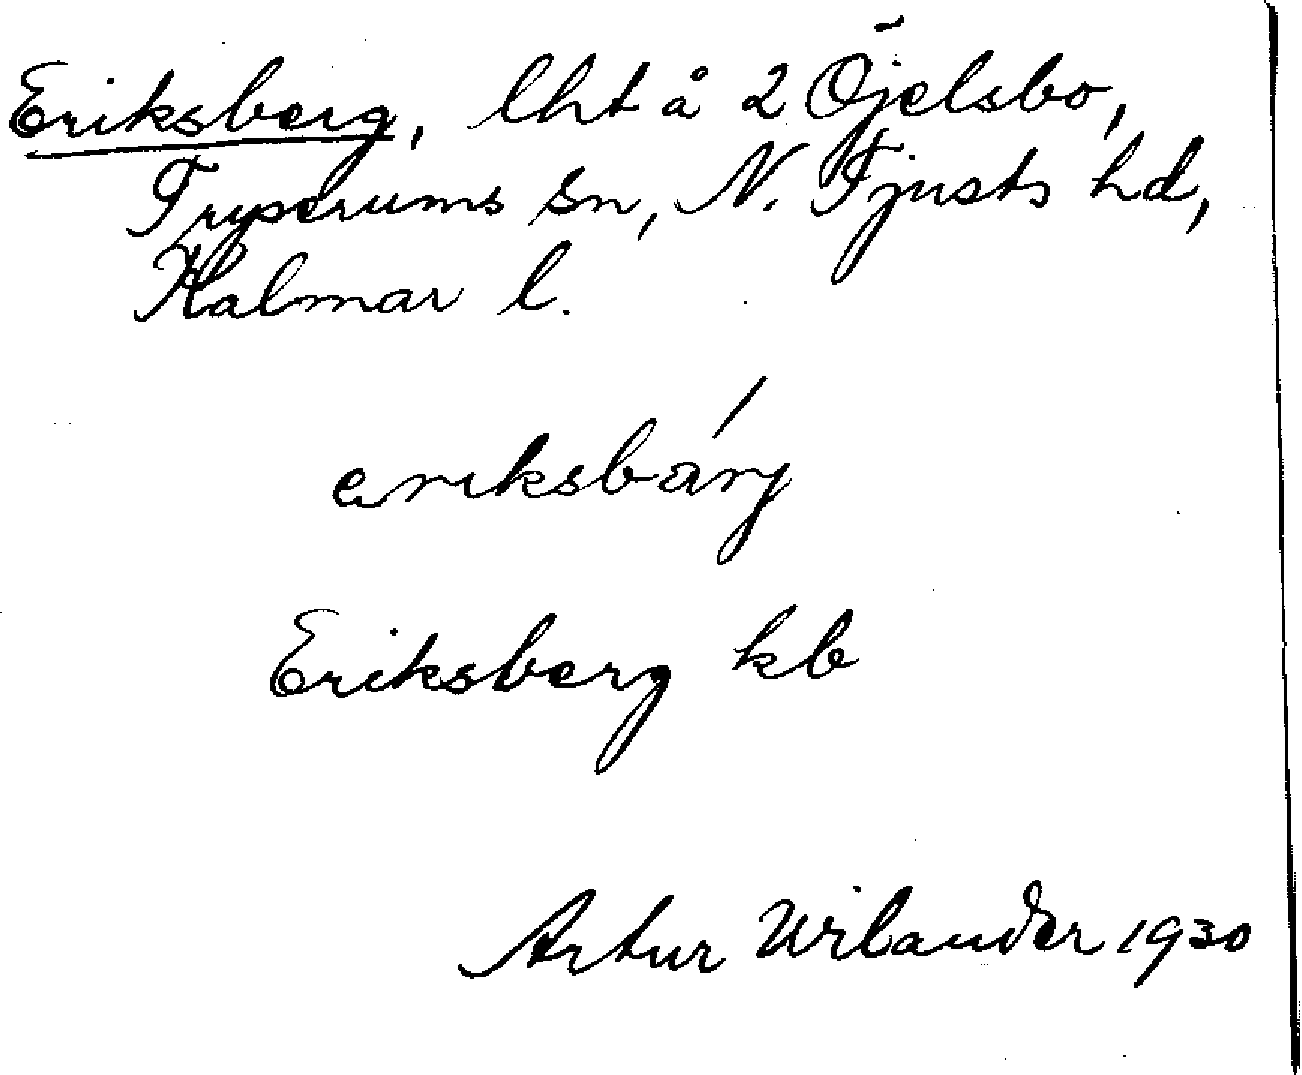 Eriksberg, lht å 2 Öjelsbo,
Tryserums sn, N. Tjusts hd,
Kalmar l.
eriksbárj
Eriksberg kb
Artur Wilander 1930